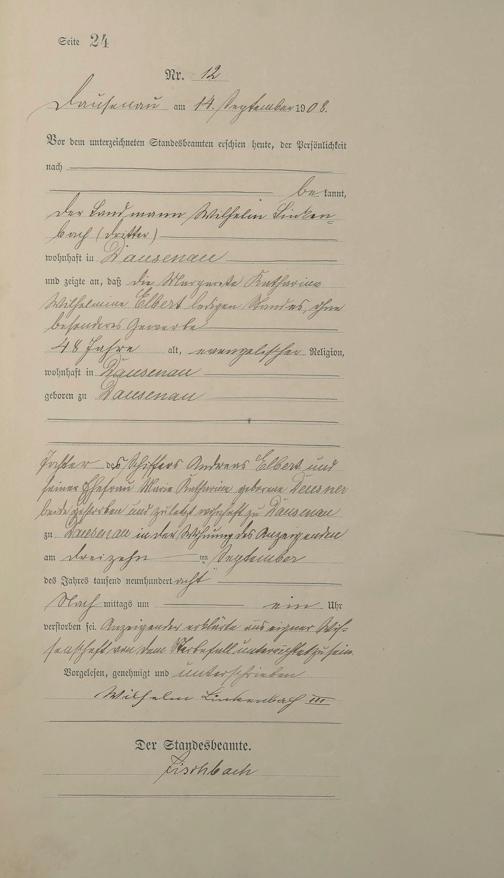 Seite 24
Nr. 12
Dausenau am 14. September 1908.
Vor dem unterzeichneten Standesbeamten erschien heute, der Persönlichkeit
nach
be kannt,
der Landmann Wilhelm Linken-
bach (dritter)
wohnhaft in Dausenau
und zeigte an, daß die Margarete Katharina
Wilhelmine Elbert ledigen Standes, ohne
besonderes Gewerbe
48 Jahre alt, evangelischer Religion,
wohnhaft in Dausenau
geboren zu Dausenau
Tochter des Schiffers Andreas Elbert und
seiner Ehefrau Marie Katharina geborene Deusner
beide gestorben und zuletzt wohnhaft zu Dausenau
zu Dausenau in der Wohnung des Anzeigenden
am dreizehn ten September
des Jahres tausend neunhundert acht
Nach mittags um ein Uhr
verstorben sei. Anzeigender erklärte aus eigner Wis-
senschaft von dem Sterbefall unterrichtet zu sein.
Vorgelesen, genehmigt und unterschrieben
Wilhelm Linkenbach III
Der Standesbeamte.
Fischbach